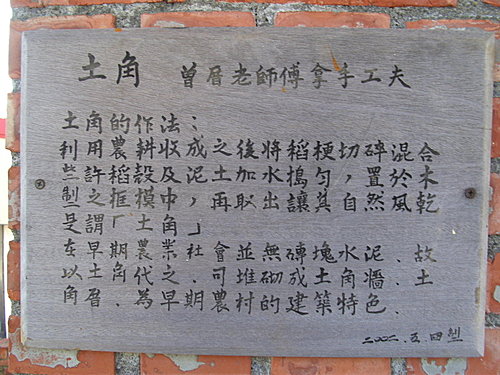 土角 曾厝老師傅拿手工夫
土角的作法:
利用農耕收成之後將稻梗切,碎混合
些許稻穀及泥土加水搗勻置於木
製之框模中,再取出讓其自然風乾
是謂「土角」
在早期農業社會並無磚塊水泥.故
以土角代之.可堆砌成土角牆.土
角厝.為早期農村的建築特色.
二〇〇二.五.四製